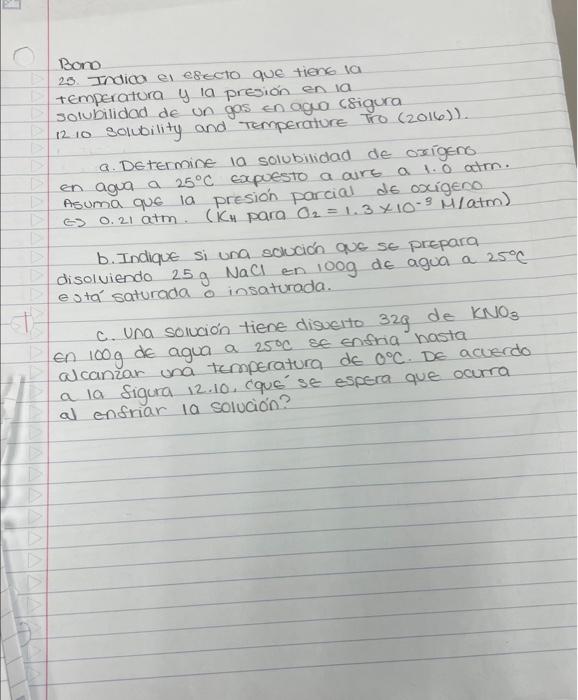 Bono
25. Indica el efecto que tiene la
temperatura y la presión en la
solubilidad de un gas en agua (figura
12.10 Solubility and Temperature Tro (2016)).
a. Determine la solubilidad de oxígeno
en agua a 25°C expuesto a aire a 1.0 atm.
Asuma que la presión parcial de oxígeno
es 0.21 atm. (KH para O2 = 1.3 x 10-3 M/atm)
b. Indique si una solución que se prepara
disolviendo 25 g NaCl en 100g de agua a 25°C
está saturada o insaturada.
c. Una solución tiene disuelto 32g de KNO3
en 100g de agua a 25°C se enfria hasta
alcanzar una temperatura de 0°C. De acuerdo
a la figura 12.10, ¿qué se espera que ocurra
al enfriar la solución?